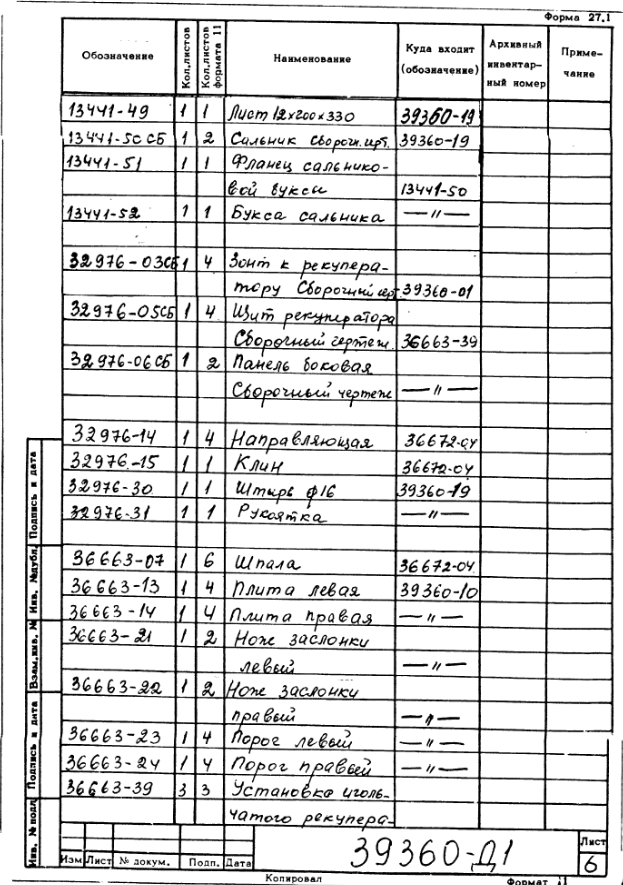 Форма 27.1
Обозначение Кол.листов Кол.листов формата 11 Наименование Куда входит (обозначение) Архивный инвентарный номер Примечание
13441-49 1 1 Лист 12х200х330 39360-19
13441-50СБ 1 2 Сальник Сборочн. черт. 39360-19
13441-51 1 1 Фланец сальнико-
вой буксы 13441-50
13441-52 1 1 Букса сальника —〃—
32976-03СБ 1 4 Зонт к рекупера-
тору Сборочный черт 39360-01
32976-05СБ 1 4 Щит рекуператора
Сборочный чертеж. 36663-39
32976-06СБ 1 2 Панель боковая
Сборочный чертеж —〃—
32976-14 1 4 Направляющая 36672-04
32976-15 1 1 Клин 36672-04
32976-30 1 1 Штырь ф16 39360-19
32976-31 1 1 Рукоятка —〃—
36663-07 1 6 Шпала 36672-04
36663-13 1 4 Плита левая 39360-10
36663-14 1 4 Плита правая —〃—
36663-21 1 2 Нож заслонки
левый —〃—
36663-22 1 2 Нож заслонки
правый —〃—
36663-23 1 4 Порог левый —〃—
36663-24 1 4 Порог правый —〃—
36663-39 3 3 Установка иголь-
чатого рекупера-
Подпись и дата
Инв. №дубл.
Взам.инв. №
Подпись и дата
Инв. №подл.
39360-Д1
Лист
6
Изм Лист № докум. Подп. Дата
Копировал
Формат 11